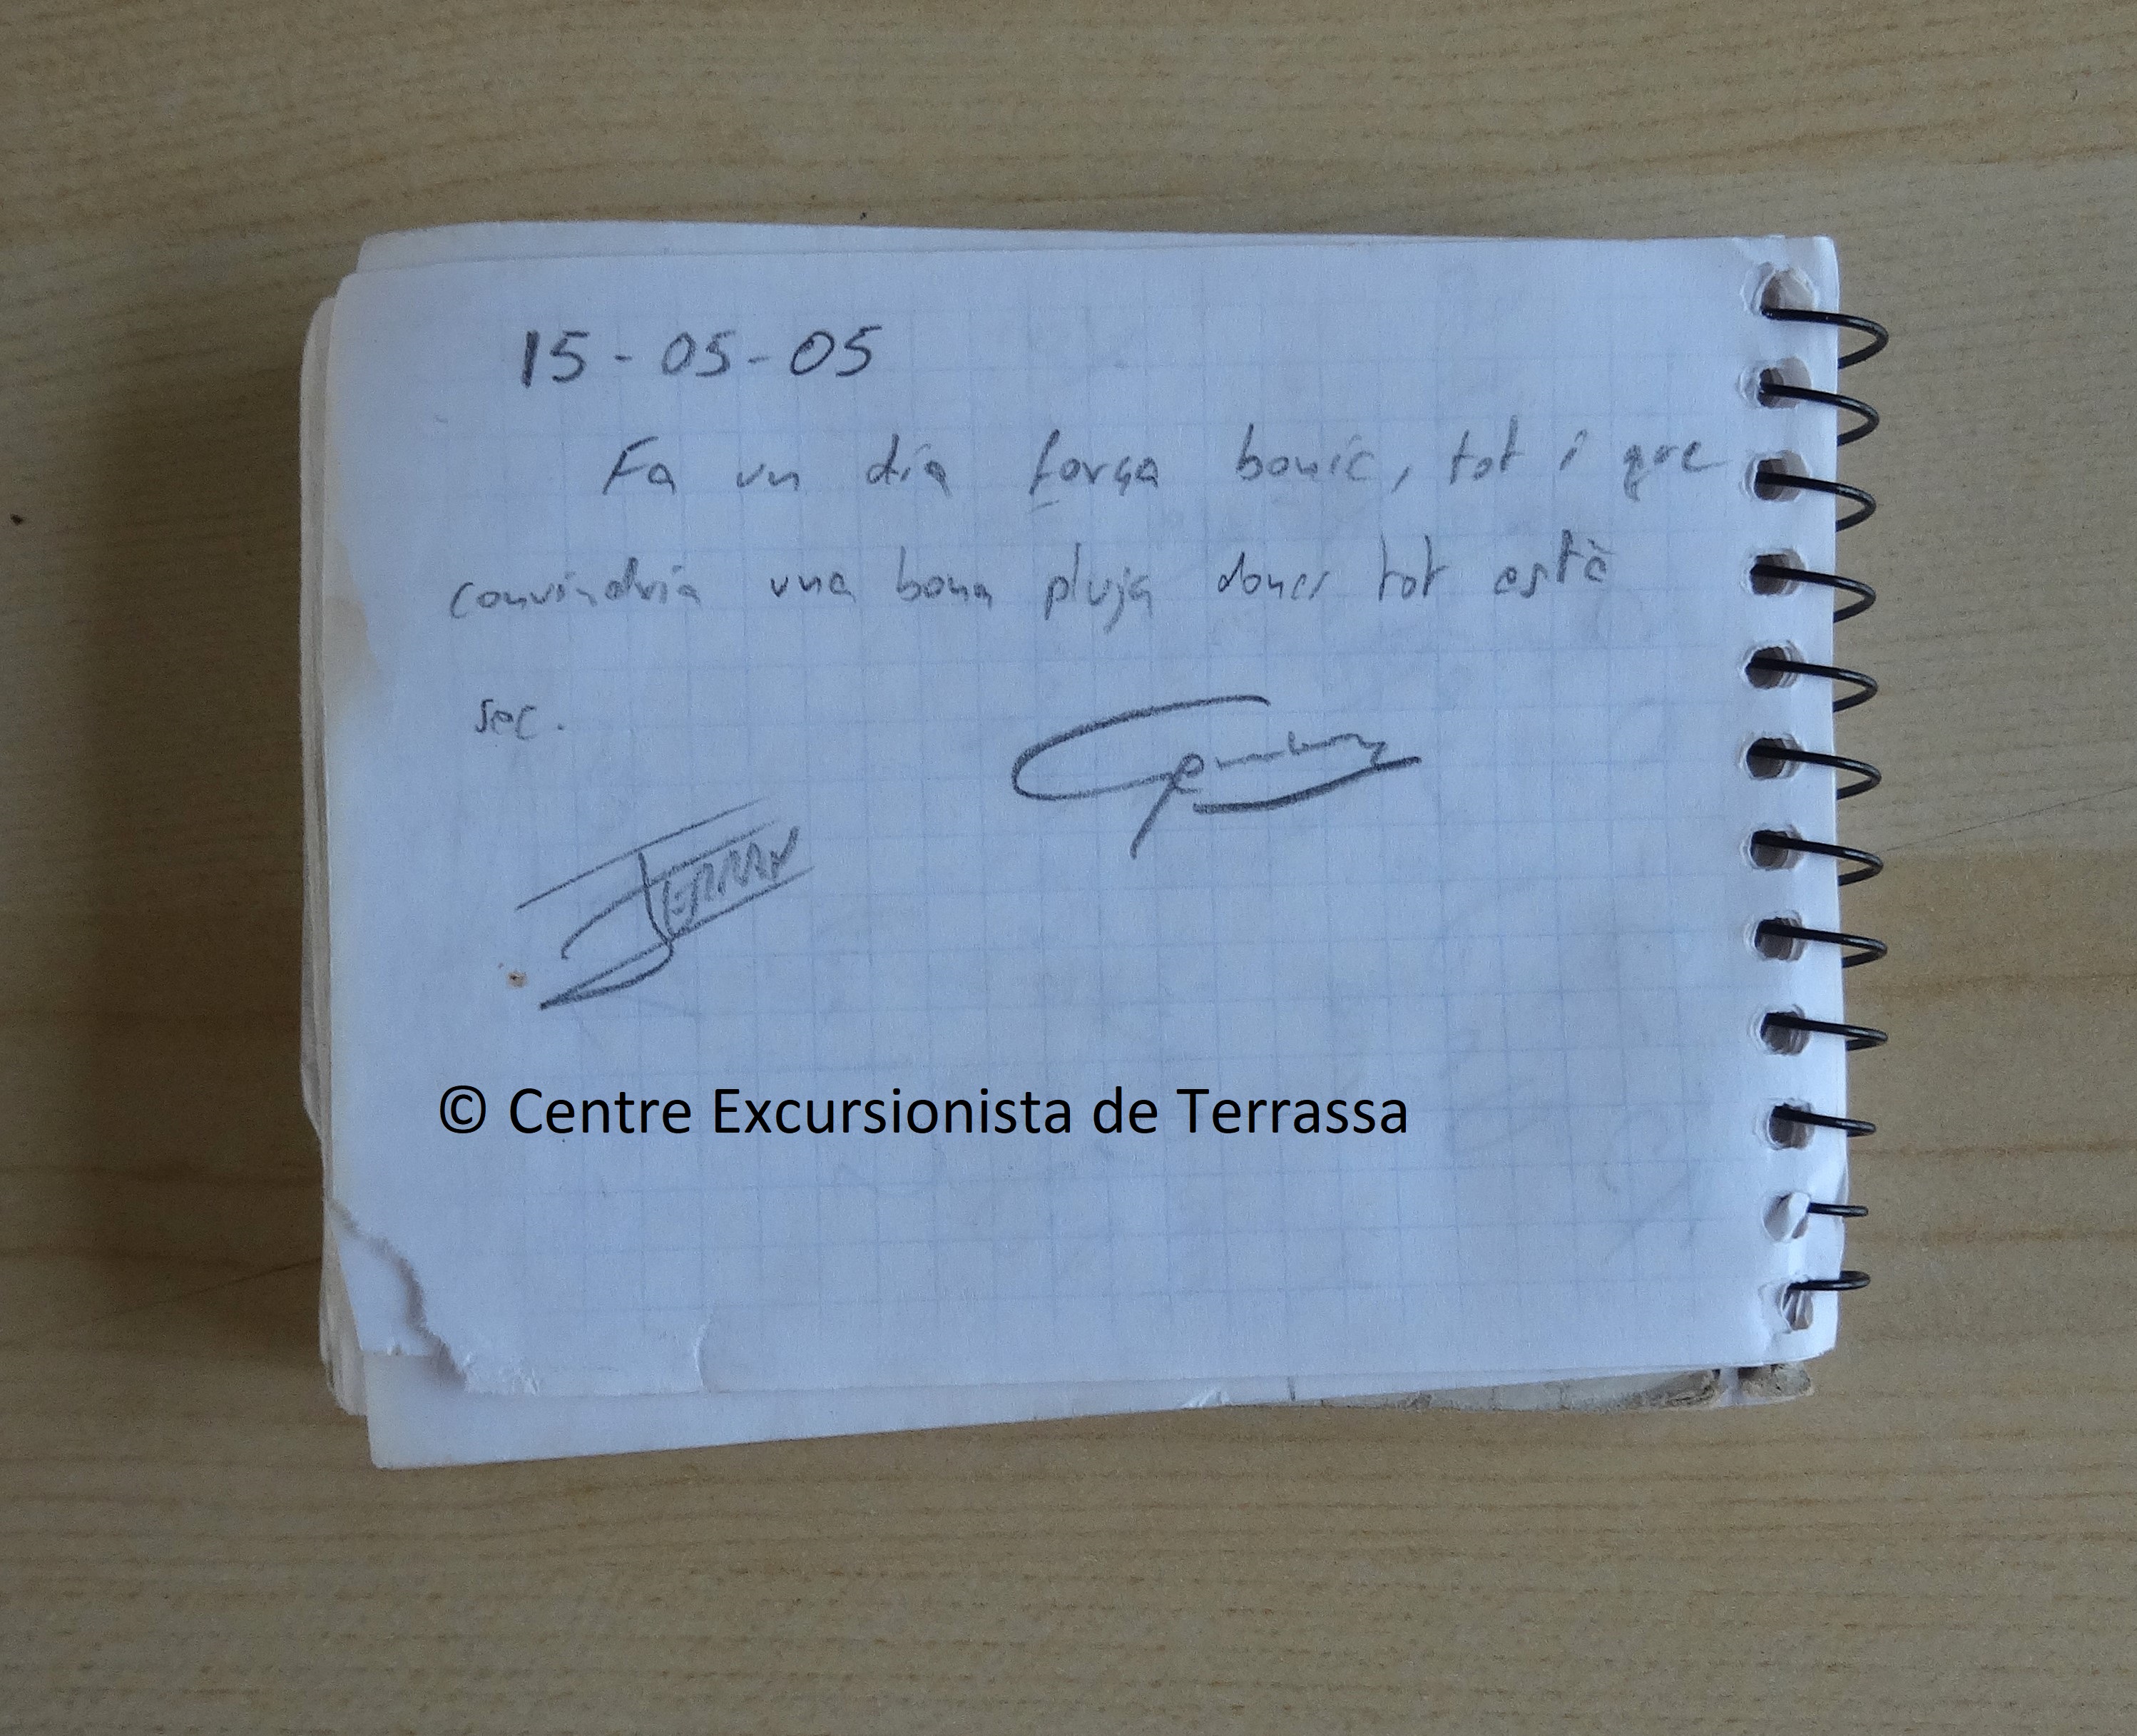 15-05-05
Fa un dia força bonic, tot i que
convindria una bona pluja doncs tot està
sec.
© Centre Excursionista de Terrassa